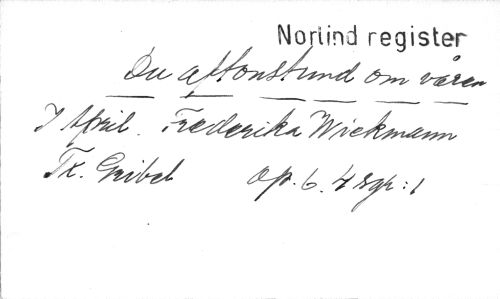 Norlind register
Du aftonstund om våren
I April. Frederika Wickmann
Tr. Geibel op. 6. 4 sgr: 1